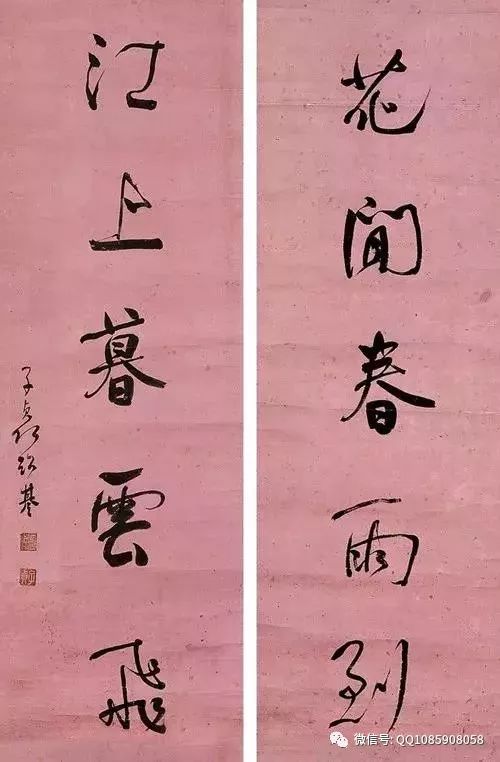 花閒春雨到
江上暮雲飛
子貞何紹基
微信号: QQ1085908058